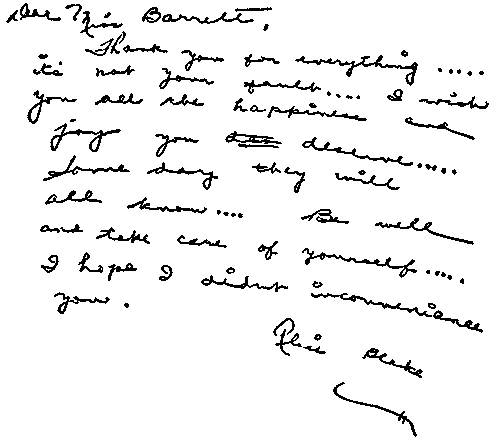 Dear Miss Barrett,
Thank you for everything .....
it's not your fault.... I wish
you all the happiness and
joys you deserve.....
Some day they will
all know.... Be well
and take care of yourself.....
I hope I didnt inconvenience
you.
Blake